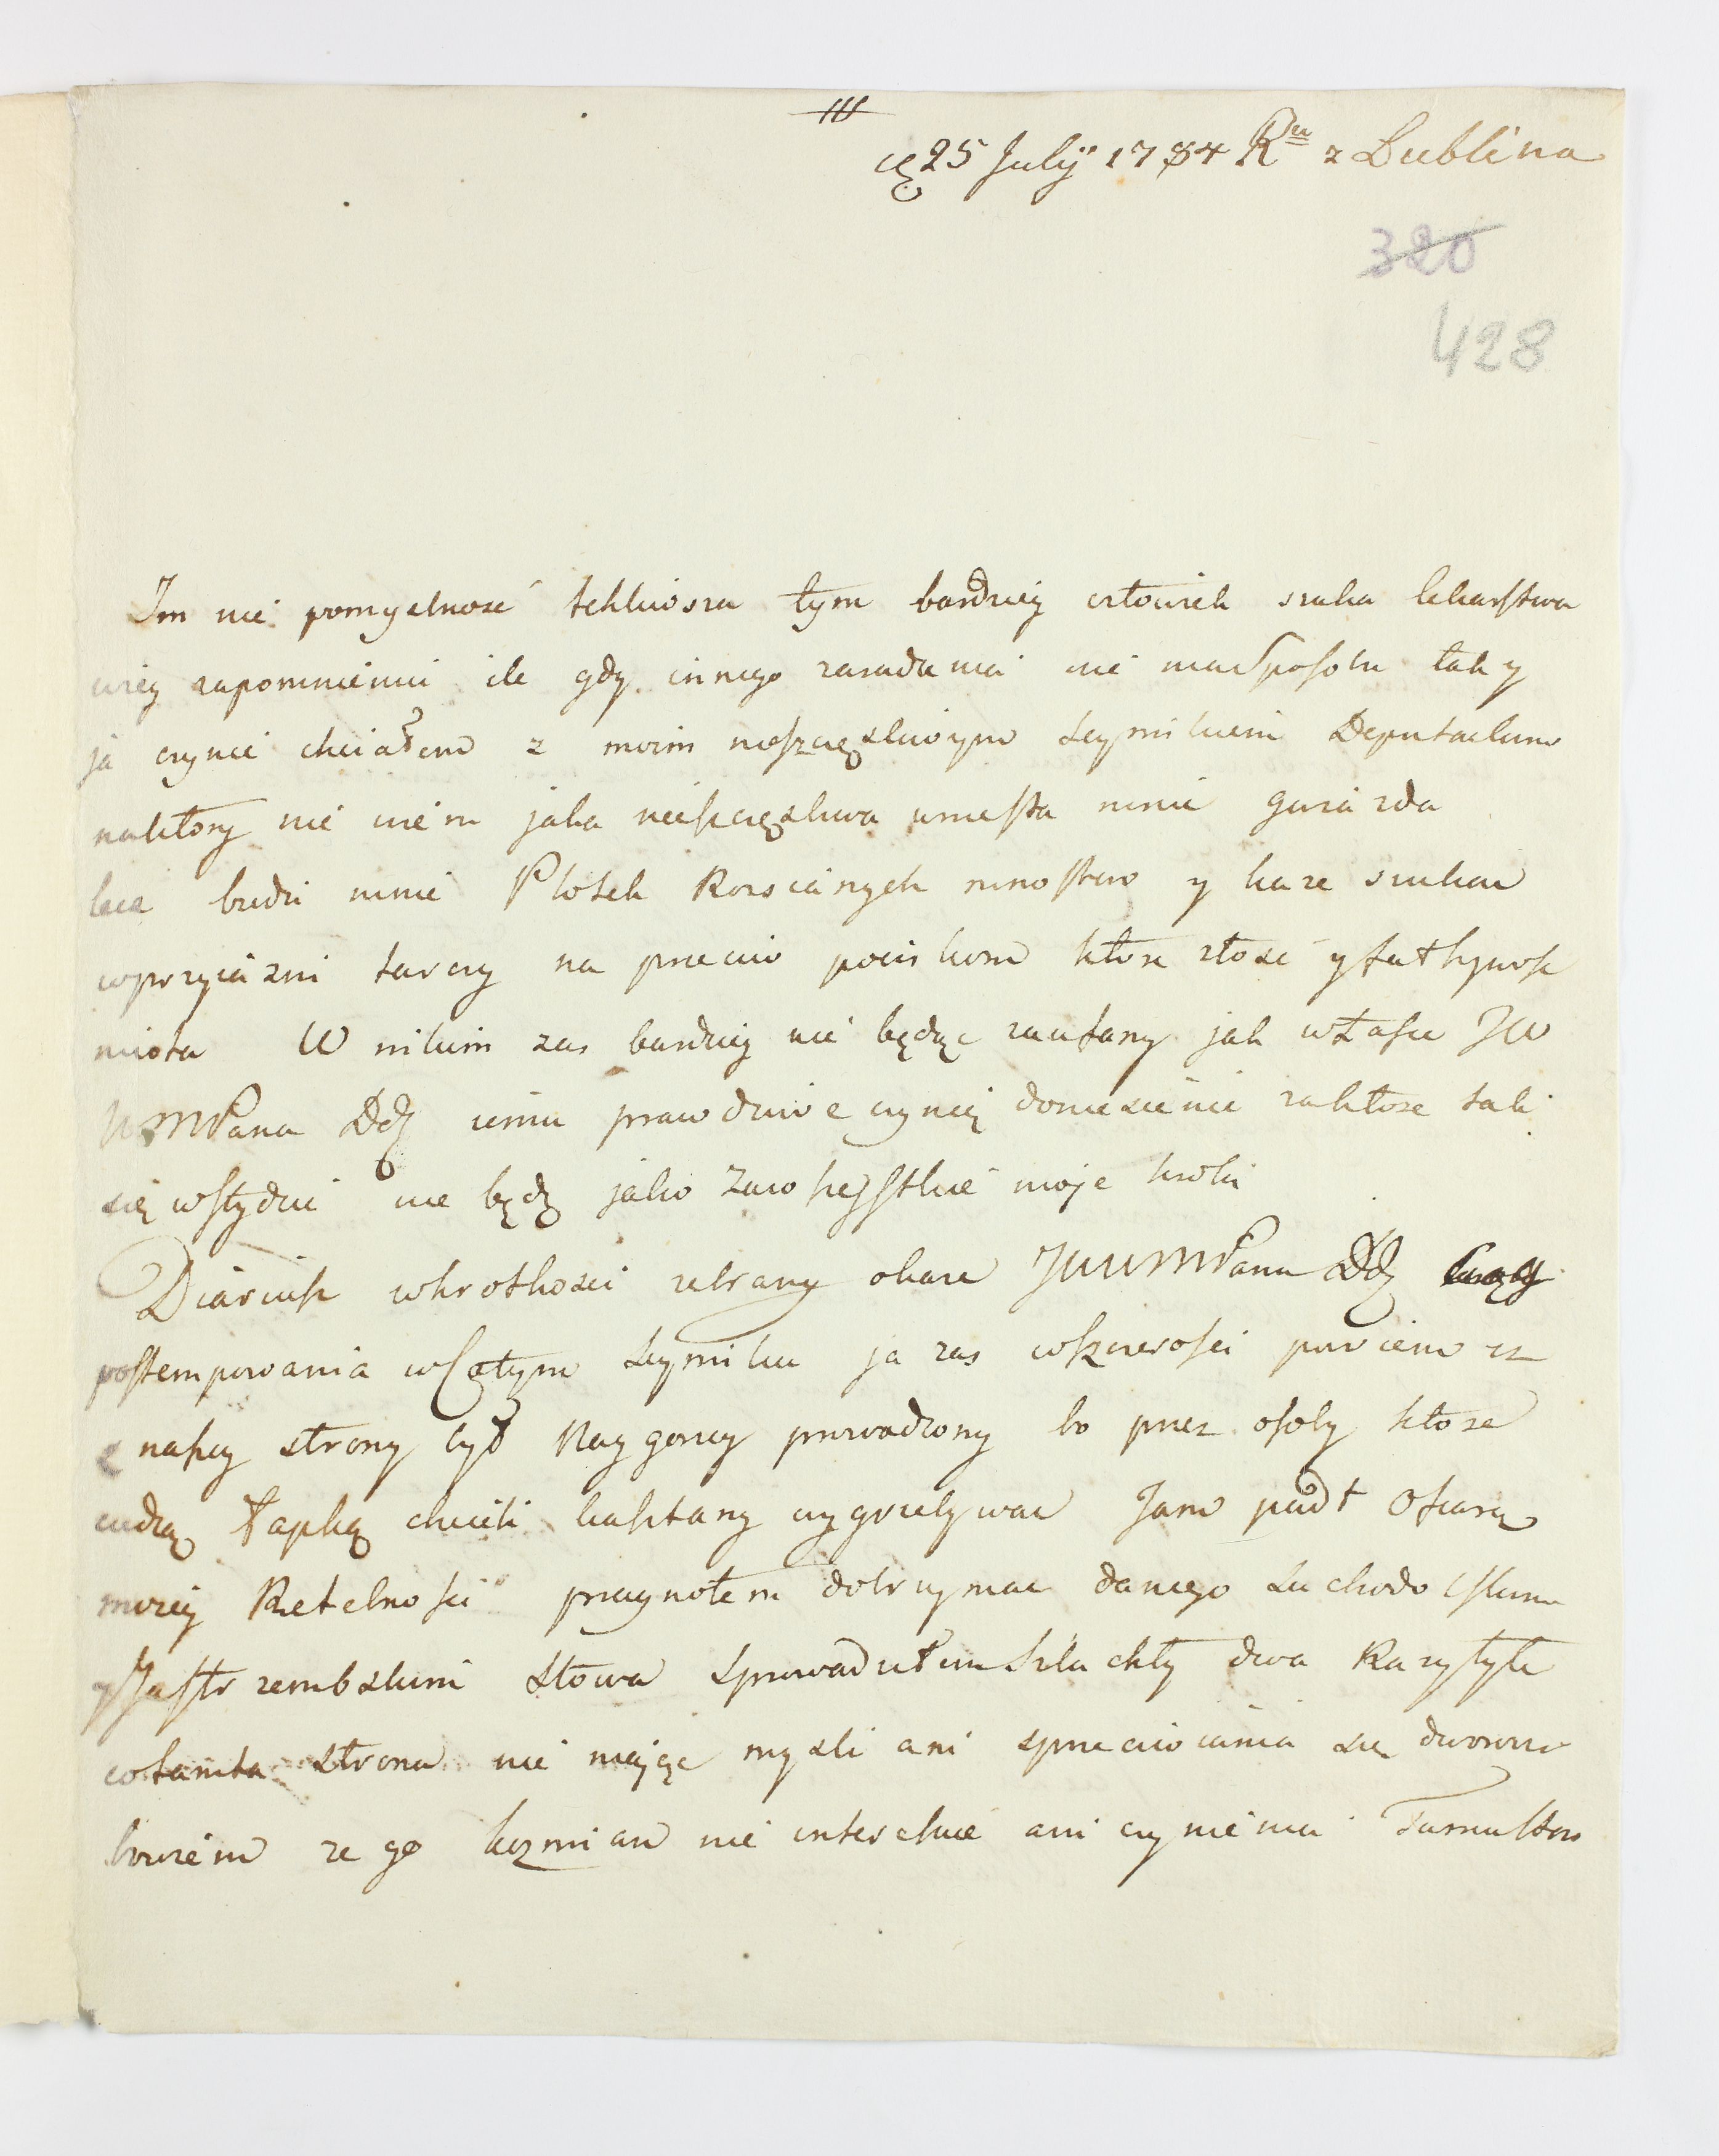 III
25 Julij 1784 Ru z Lublina
320
428
Im nie pomyslnosć tchliwsza tym bardziey człowiek szuka lekarstwa
w iey zapomnieniu ile gdy innego zaradzenia nie ma sposobu tak y
ja czynić chciałem z moim nieszczęsliwym Seymikiem Deputackim
na ktory nie wiem jaka nieszczęsliwa uniosła mnie gwiazda
lecz budzi mnie Plotek Rozsianych mnostwo y każe szukać
w przyiazni tarczy na przeciw pociskom ktore złosć y
miota W nikim zas bardziey nie będąc zaufany jak w łasce JW
WMPana Ddz iemu prawdziwe czynię doniesienie za ktore tak
się wstydzić nie będę jako za wszystkie moje kroki
Diariusz w krotkosci zebrany okaze JWWMPanu Ddz
postempowania w całym Seymiku ja zas w szczerosci powiem iż
z naszey strony był Naygorzey prowadzony bo przez osoby ktore
cudzą Łapką chcieli kasztany wygrzebywać Jam padł Ofiarą
moiey Rzetelnosci pragnołem dotrzymać danego Suchodolskim
y Jastrzembskim słowa sprowadziłem szlachty dwa Razy tyle
co tamta strona nie mając mysli ani sprzeciwiania się dworowi
bowiem ze go Kozmian nie interesuie ani czynienia Tumultow